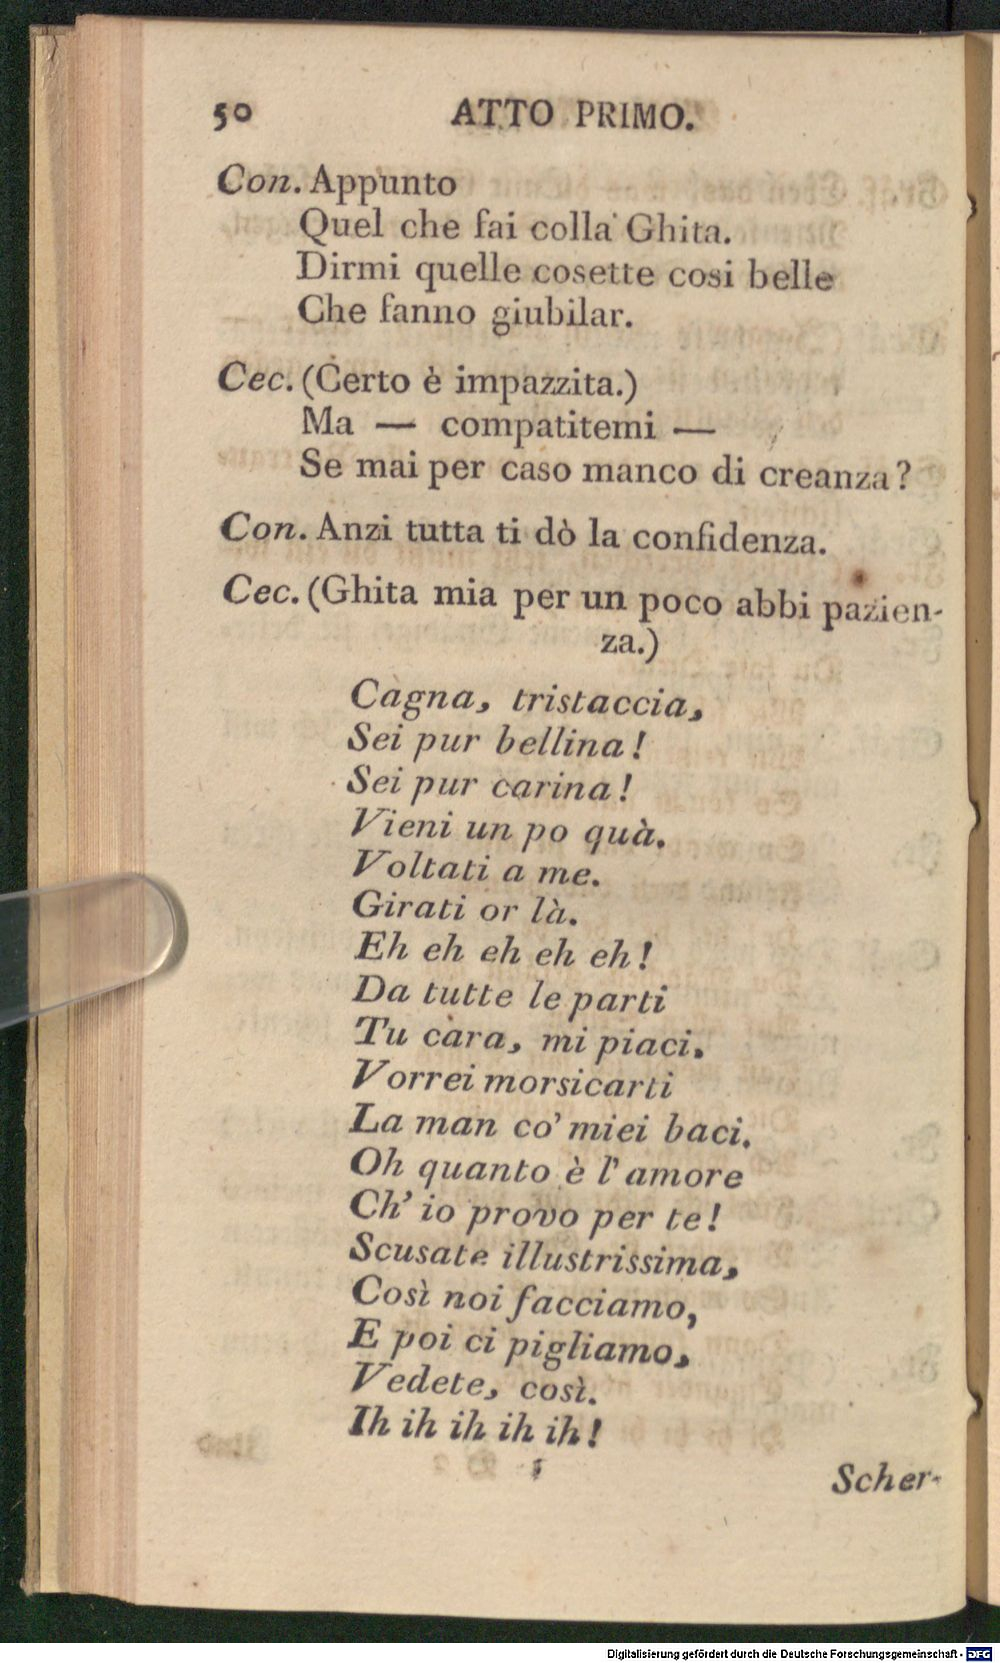 50 ATTO PRIMO.
Con. Appunto
Quel che fai colla Ghita.
Dirmi quelle cosette cosi belle
Che fanno giubilar.
Cec. (Certo è impazzita.)
Ma — compatitemi —
Se mai per caso manco di creanza?
Con. Anzi tutta ti dò la confidenza.
Cec. (Ghita mia per un poco abbi pazien-
za.)
Cagna, tristaccia,
Sei pur bellina!
Sei pur carina!
Vieni un po quà.
Voltati a me.
Girati or là.
Eh eh eh eh eh!
Da tutte le parti
Tu cara, mi piaci.
Vorrei morsicarti
La man co' miei baci.
Oh quanto è l' amore
Ch' io provo per te!
Scusate illustrissima,
Così noi facciamo,
E poi ci pigliamo,
Vedete, così.
Ih ih ih ih ih!
Scher-
Digitalisierung gefördert durch die Deutsche Forschungsgemeinschaft - DFG